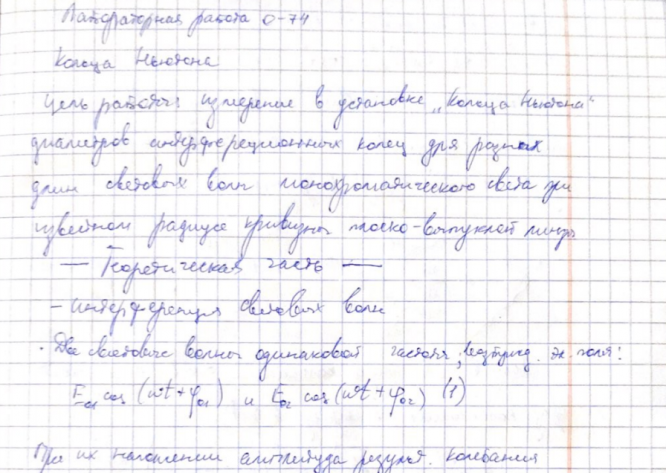 Лабораторная работа О-74
Кольца Ньютона
Цель работы измерение в установке „Кольца Ньютона"
диаметров интерференционных колец для разных
длин световых волн монохроматического света при
известном радиусе кривизны плоско-выпуклой линзы
— Теоретическая часть —
- интерференция световых волн
· Две световые волны одинаковой частоты, эл. поля:
E₀₁ cos (ωt + φ₀₁) и E₀₂ cos (ωt + φ₀₂) (1)
При их наложении амплитуда результ. колебания